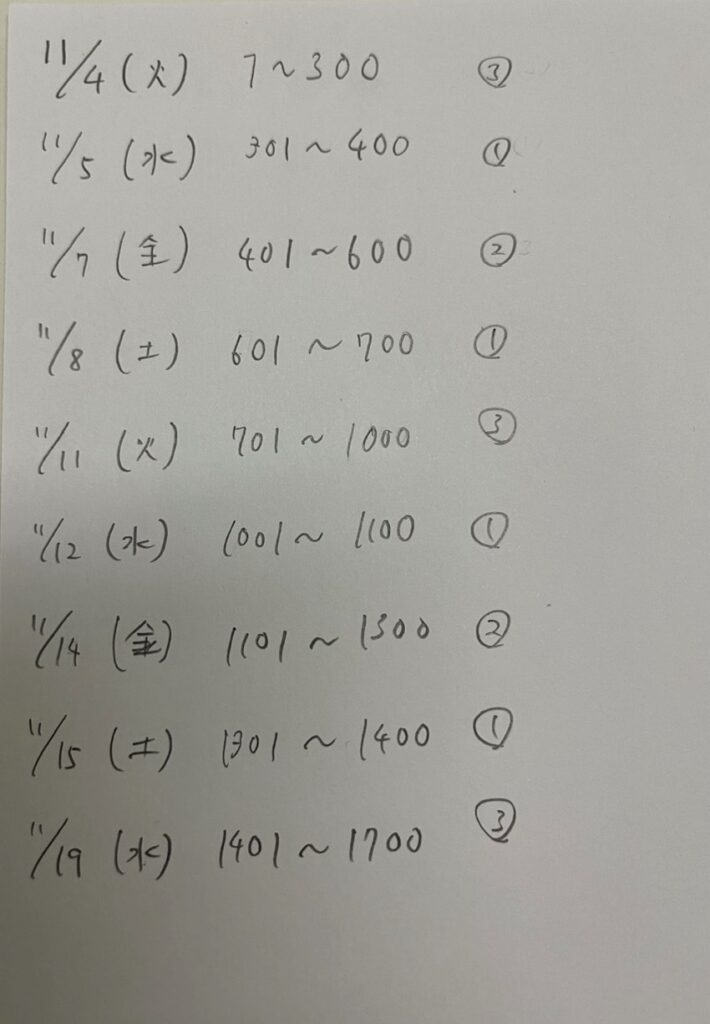 11/4 (火) 7～300 ③
11/5 (水) 301～400 ①
11/7 (金) 401～600 ②
11/8 (土) 601～700 ①
11/11 (火) 701～1000 ③
11/12 (水) 1001～1100 ①
11/14 (金) 1101～1300 ②
11/15 (土) 1301～1400 ①
11/19 (水) 1401～1700 ③